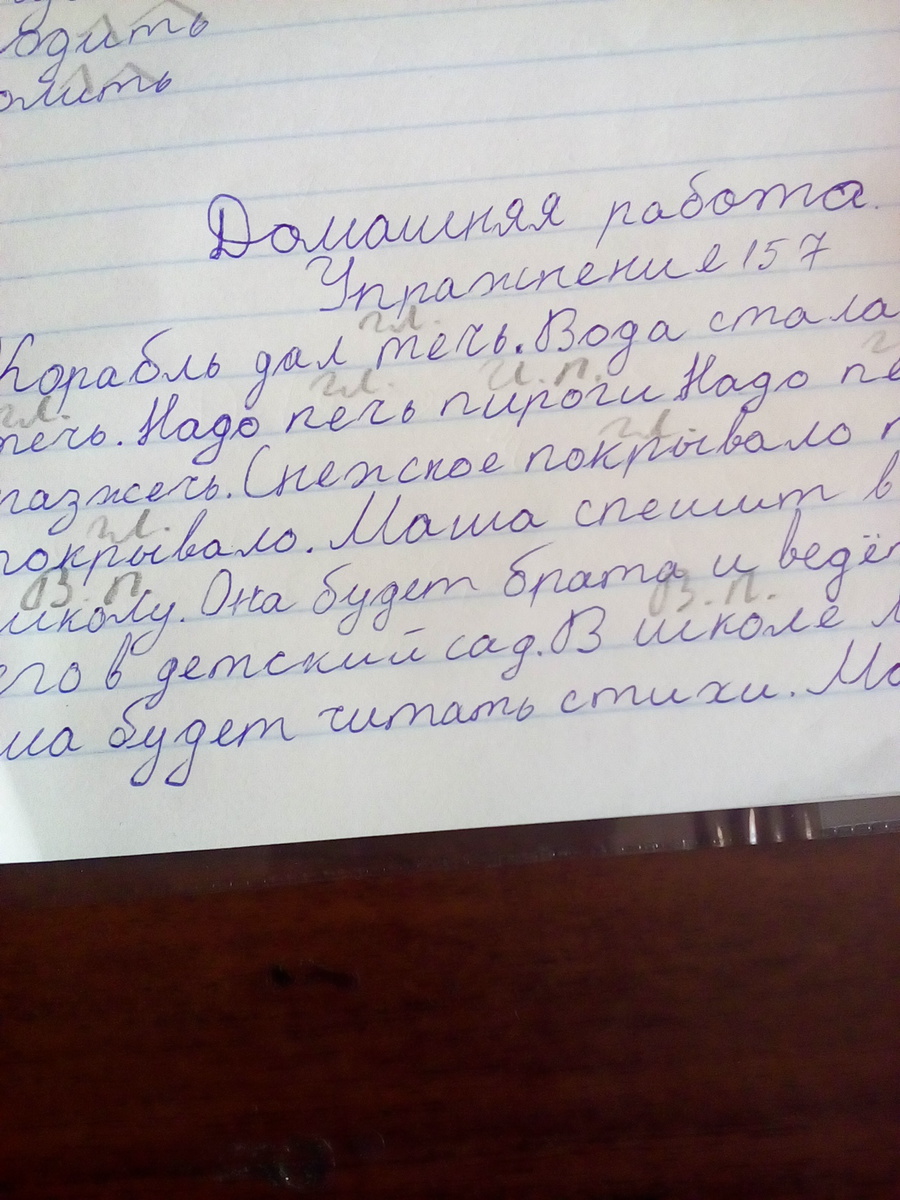 одить
омить
Домашняя работа.
Упражнение 157
гл.
Корабль дал течь. Вода стала
гл. гл. И.п. г
течь. Надо печь пироги Надо пе
гл.
разжечь. Снежское покрывало п
гл.
покрывало. Маша спешит в
В.п.
школу. Она будет брата и ведёт
В.п.
его в детский сад. В школе М
ша будет читать стихи. Ма